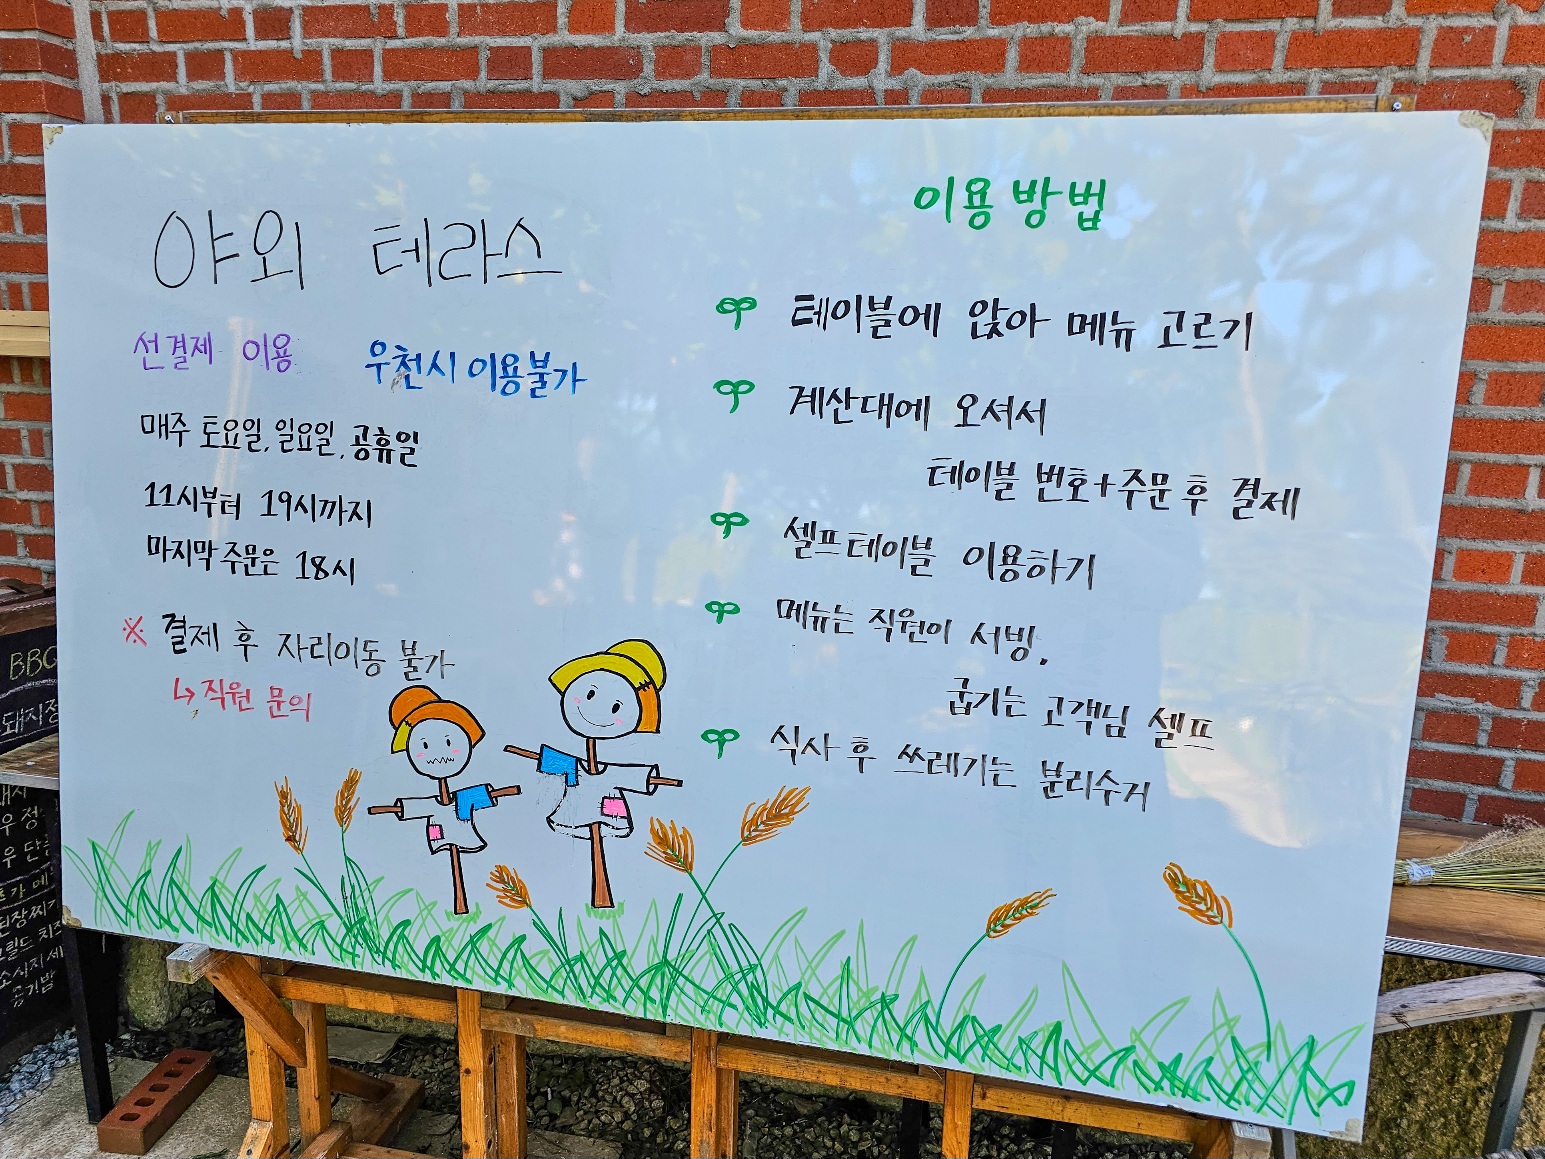 야외 테라스
선결제 이용 우천시 이용불가
매주 토요일, 일요일, 공휴일
11시부터 19시까지
마지막 주문은 18시
※ 결제 후 자리이동 불가
↳ 직원 문의
이용 방법
테이블에 앉아 메뉴 고르기
계산대에 오셔서
테이블 번호+주문 후 결제
셀프테이블 이용하기
메뉴는 직원이 서빙,
굽기는 고객님 셀프
식사 후 쓰레기는 분리수거
BBQ